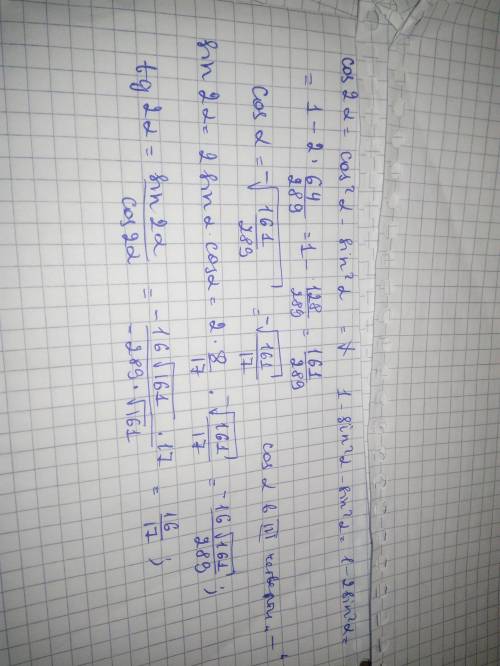 cos2α = cos²α - sin²α = 1 - sin²α sin²α = 1 - 2sin²α =
= 1 - 2 · 64/289 = 1 - 128/289 = 161/289
cos α = -√(161/289) = -√161/17 cos α в III четверти „—“
sin 2α = 2 sin α · cos α = 2 · 8/17 · -√161/17 = -16√161/289 ;
tg 2α = sin 2α/cos 2α = -16√161 · 17/-289 · √161 = 16/17 ;